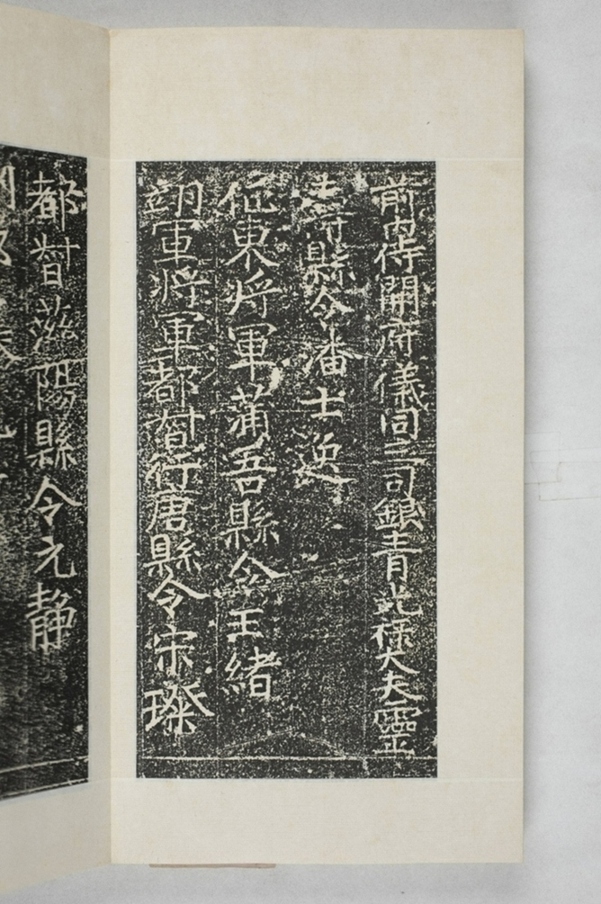 前内侍開府儀同三司銀青光祿大夫靈
壽縣令潘士逸
征東將軍蒲吾縣令王緒
翊軍將軍都督行唐縣令宋璨
都督蒞陽縣令元静